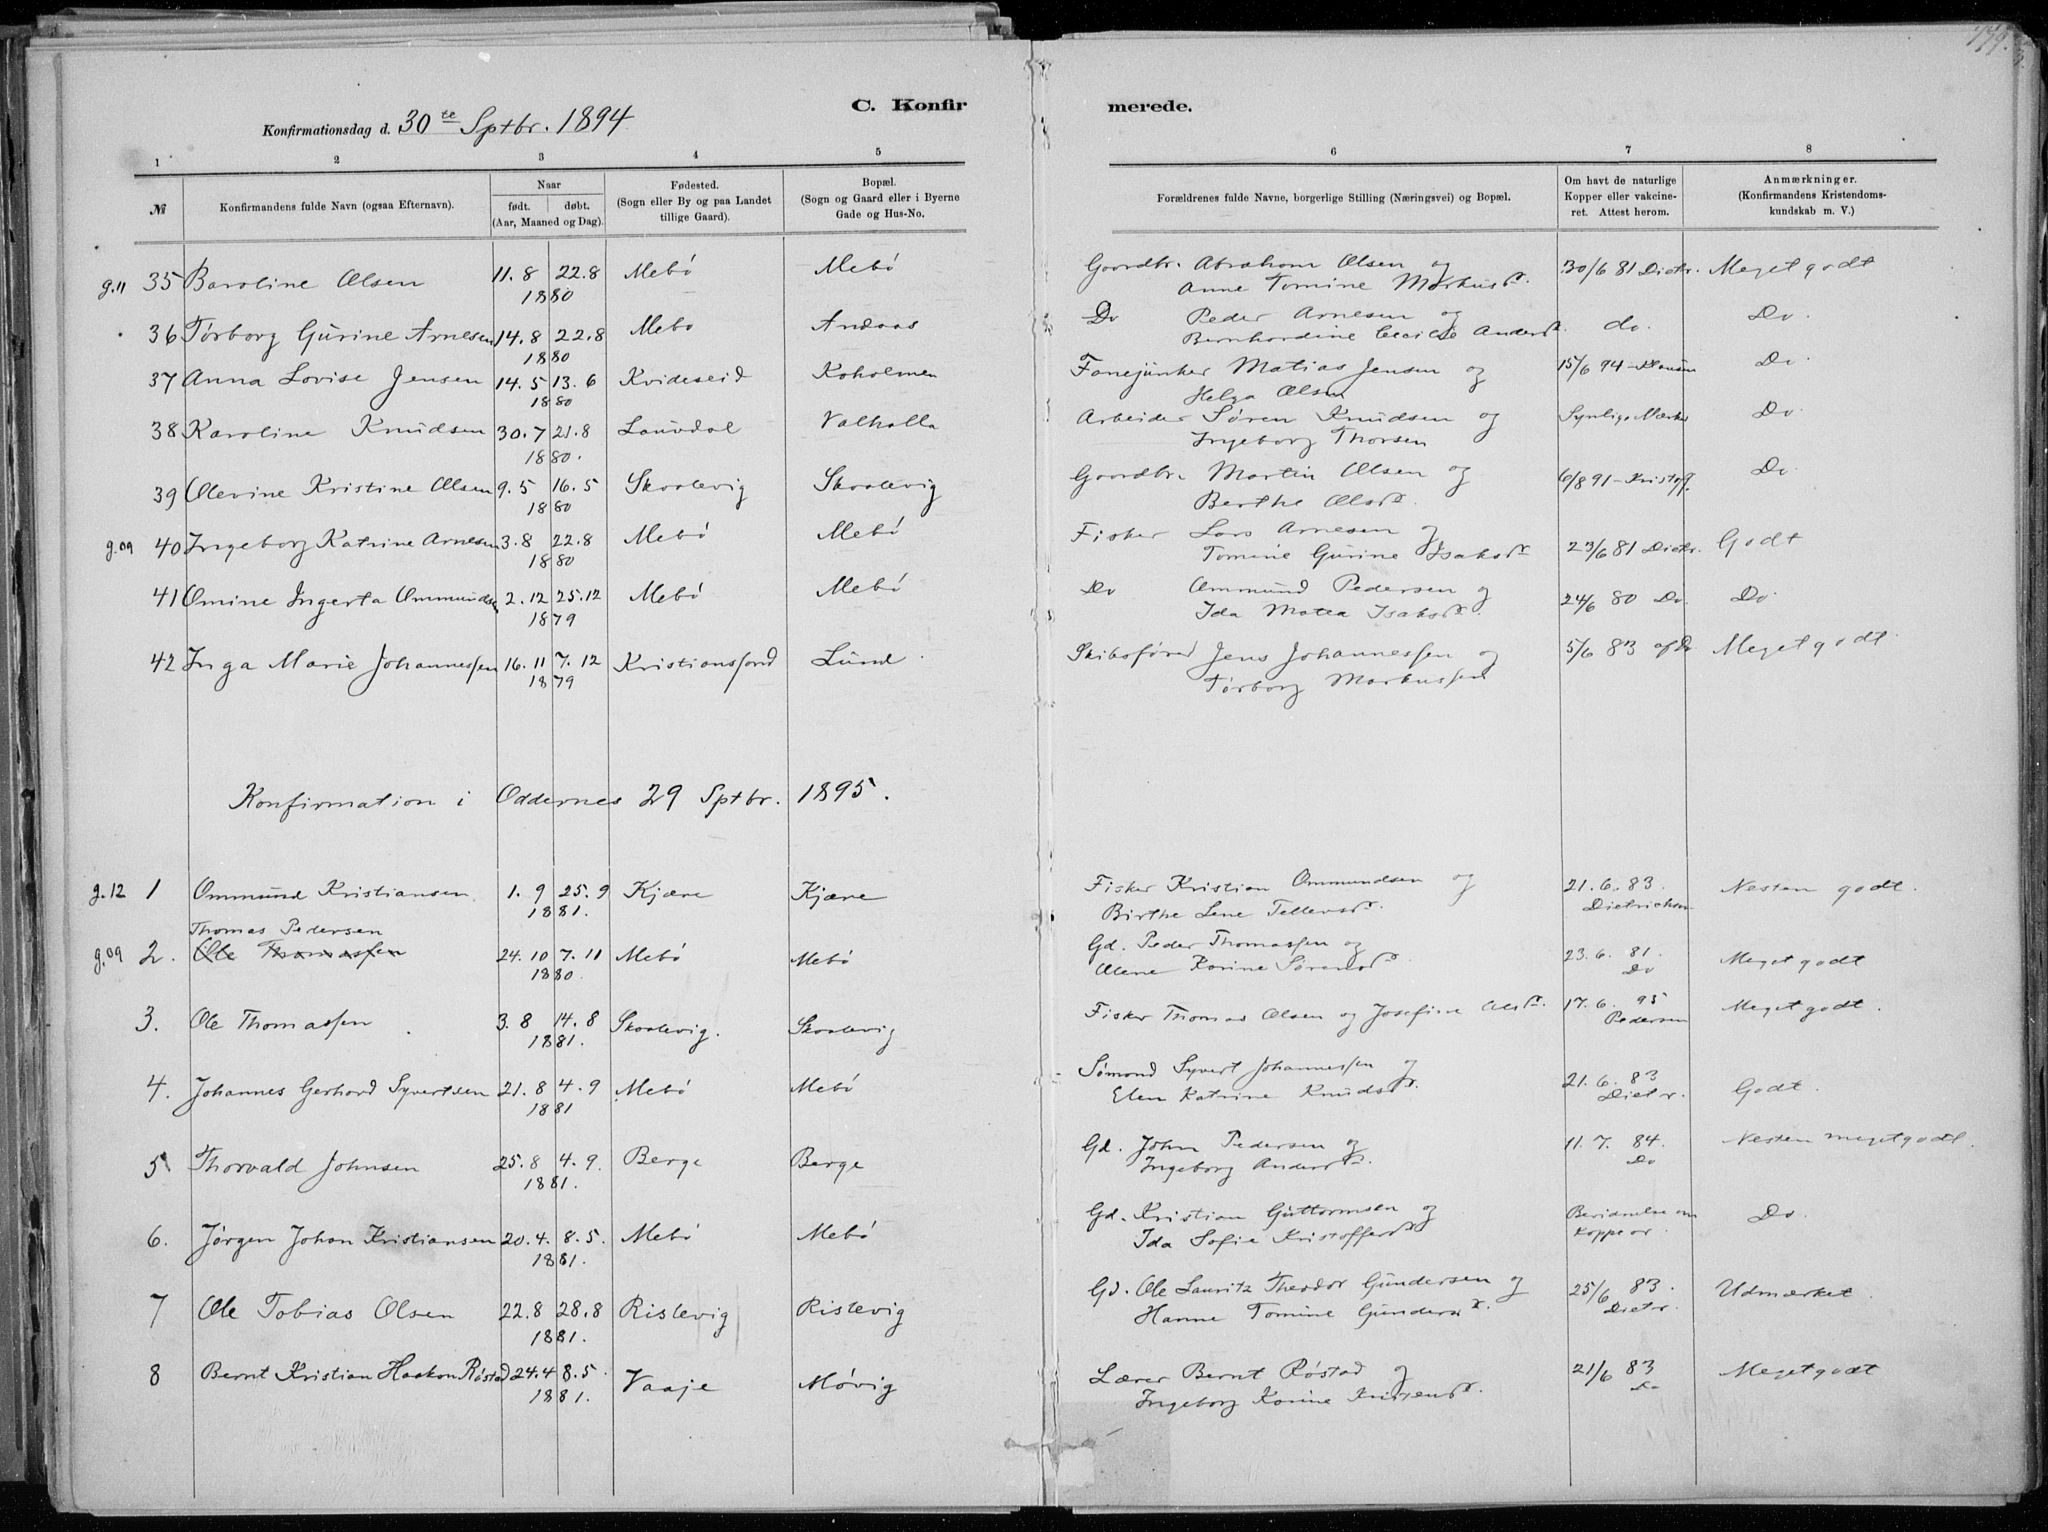 179.
C. Konfirmerede.
Konfirmationsdag d. 30te Sptbr. 1894
1 2 3 4 5 6 7 8
№ Konfirmandens fulde Navn (ogsaa Efternavn). Naar født. døbt. (Aar, Maaned og Dag). Fødested. (Sogn eller By og paa Landet tillige Gaard). Bopæl. (Sogn og Gaard eller i Byerne Gade og Hus-No. Forældrenes fulde Navne, borgerlige Stilling (Næringsvei) og Bopæl. Om havt de naturlige Kopper eller vakcineret. Attest herom. Anmærkninger. (Konfirmandens Kristendomskundskab m. V.)
g.11 35 Baroline Olsen 11.8 22.8 Mebø Mebø Gaardbr. Abraham Olsen og 30/6 81 Dietr. Meget godt
1880 Anne Tomine Markusdr.
36 Tørborg Gurine Arnesen 14.8 22.8 Mebø Andaas Do Peder Arnesen og do. Do.
1880 Bernhardine Cecilie Andersdr.
37 Anna Lovise Jensen 14.5 13.6 Kvideseid Koholmen Fanejunker Matias Jensen og 15/6 94 Do
1880 Helga Olsen
38 Karoline Knudsen 30.7 21.8 Laurdal Valhalla Arbeider Søren Knudsen og Synlige Mærker Do.
1880. Ingeborg Thorsen
39 Olevine Kristine Olsen 9.5 16.5 Skaalevig Skaalevig Gaardbr. Martin Olsen og 6/8 91 - Kristoff. Do.
1880 Berthe Olsdr.
g.09 40 Ingeborg Katrine Arnesen 3.8 22.8 Mebø Mebø Fisker Lars Arnesen og 23/6 81 Dietr. Godt
1880 Tomine Gurine Isaksdr.
41 Omine Ingerta Ommundsen 2.12 25.12 Mebø Mebø Do Ommund Pedersen og 24/6 80 Do. Do.
1879 Ida Matea Isaksdr.
42 Inga Marie Johannessen 16.11 7.12 Kristianssand Lund Skibsfører Jens Johannessen og 5/6 83 af Do Meget godt.
1879 Tørborg Markussen
Konfirmation i Oddernes 29 Sptbr. 1895.
g.12 1 Ommund Kristiansen 1.9 25.9 Kjære Kjære Fisker Kristian Ommundsen og 21.6.83. Nesten godt.
1881. Birthe Lene Tellevsdr. Dietrichsen
Thomas Pedersen
g.09 2. Ole Thomassen 24.10 7.11 Mebø Mebø Gd. Peder Thomassen og 23.6.81. Meget godt
1880. Olene Karine Sørensdr. Do
3. Ole Thomassen 3.8 14.8 Skaalevig. Skaalevig Fisker Thomas Olsen og Josefine Olsdr. 17.6.95 Meget godt.
1881. Pedersen
4. Johannes Gerhard Syvertsen 21.8 4.9 Mebø Mebø Sømand Syvert Johannessen og 21.6.83 Godt.
1881 Elen Katrine Knudsdr. Dietr.
5 Thorvald Johnsen 25.8 4.9. Berge Berge Gd. John Pedersen og 11.7.84. Nesten meget godt.
1881. Ingeborg Andersdr. Do
6. Jørgen Johan Kristiansen 20.4. 8.5. Mebø Mebø Gd. Kristian Guttormsen og Do.
1881. Ida Sofie Kristoffersdr.
7 Ole Tobias Olsen 22.8 28.8 Ristevig Ristevig Gd. Ole Lauritz Theodor Gundersen og 25/6 83. Udmærket.
1881. Hanne Tomine Gundersdr. Dietr.
8 Bernt Kristian Haakon Røstad 24.4 8.5. Vaaje Møvig Lærer Bernt Røstad og 21/6 83 Meget godt
1881. Ingeborg Karine Do